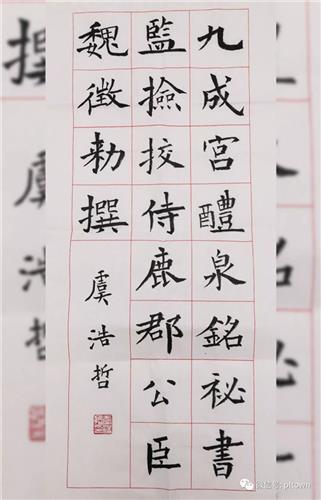 九成宮醴泉銘祕書
監撿挍侍鹿郡公臣
魏徵勅撰
虞浩哲
微信号: pltown